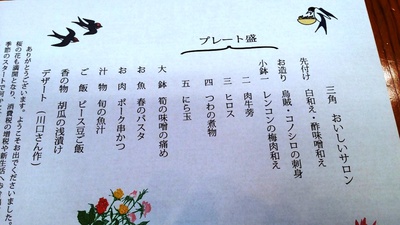 三角 おいしいサロン
プレート盛
先付け 白和え・酢味噌和え
お造り 烏賊・コノシロの刺身
小鉢 一 レンコンの梅肉和え
二 肉牛蒡
三 ヒロス
四 つわの煮物
五 にら玉
大鉢 筍の味噌の痛め
お魚 春のパスタ
お肉 ポーク串かつ
汁物 旬の魚汁
ご飯 ピース豆ご飯
香の物 胡瓜の浅漬け
デザート (川口さん作)
ありがとうございます。ようこそお出でくださいました。
桜の花も満開となり、消費税の増税や新生活へ
季節のスタートで何か